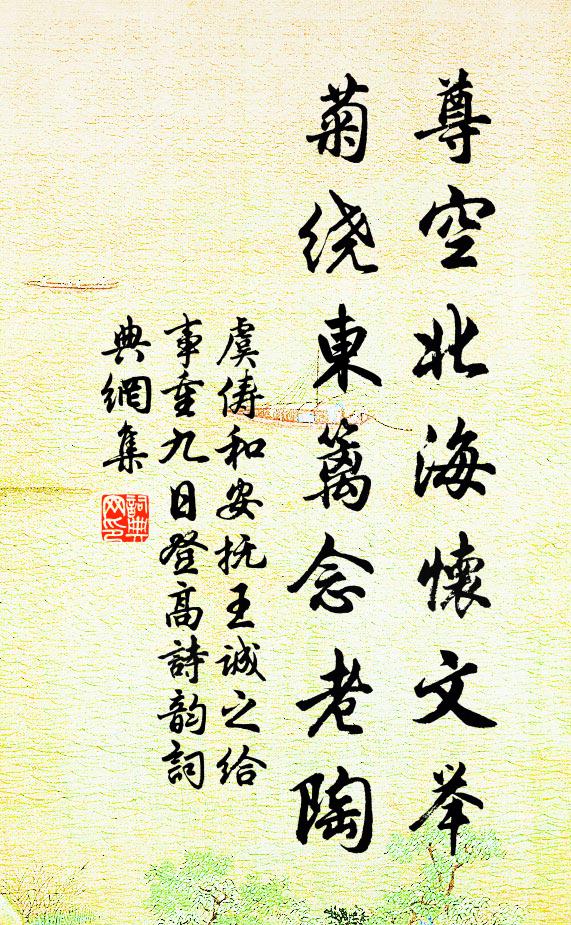 尊空北海懷文举
菊绕東篱念老陶
虞俦和安抚王诚之给
事重九日登高詩韵詞
典網集
詞典
网印